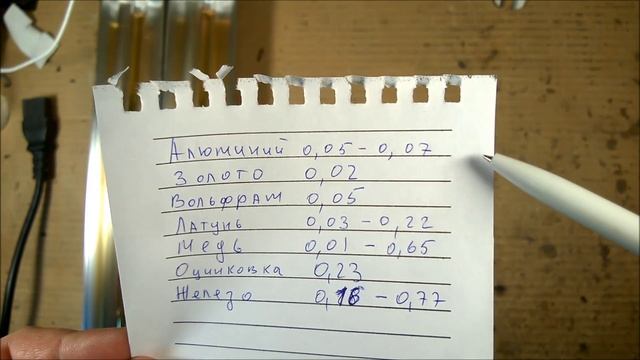 Алюминий 0,05 - 0,07
Золото 0,02
Вольфрам 0,05
Латунь 0,03 - 0,22
Медь 0,01 - 0,65
Оцинковка 0,23
Железо 0,18 - 0,77